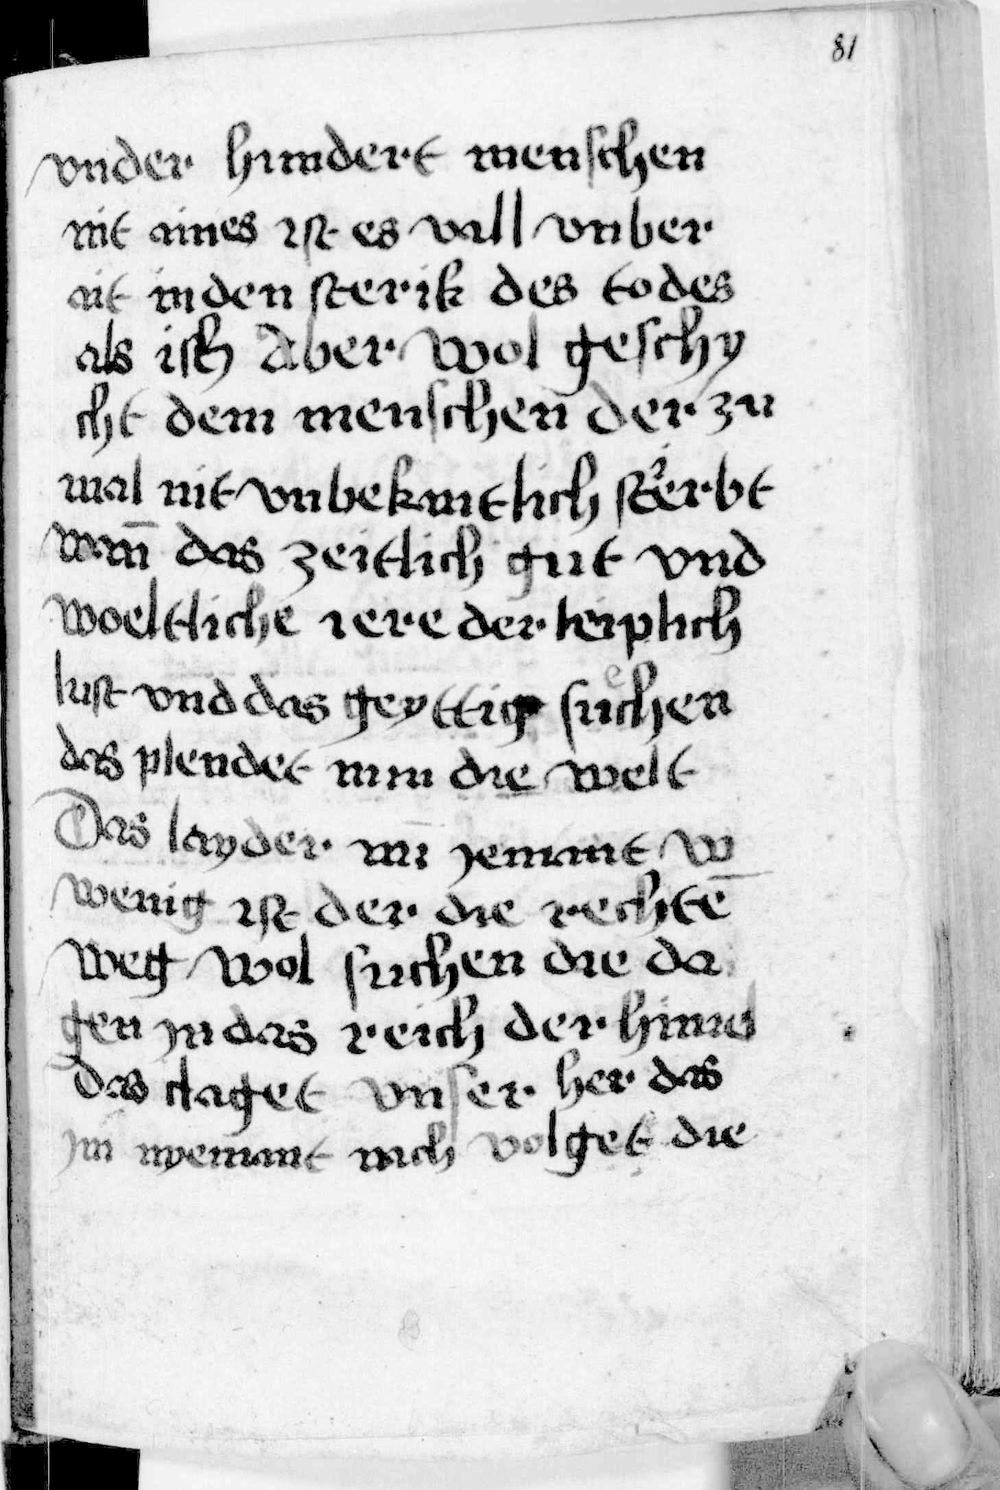 81
vnder hundert menschen
nit aines ist es vall vnber
ait in den sterik des todes
als ich Aber wol geschy
cht dem menschen der zu
mal nit vnbekantlich sterbt
wan̄ das zeitlich gut vnd
woeltliche iere der leiplich
lust vnd das geyttig suͤchen
das plendet nun die welt
Das layder nu̅ iemant w
wenig ist der die rechte̅
weg wol suchen die da
gen in das reich der himel
das claget vnser her das
im nyemant nach volget die